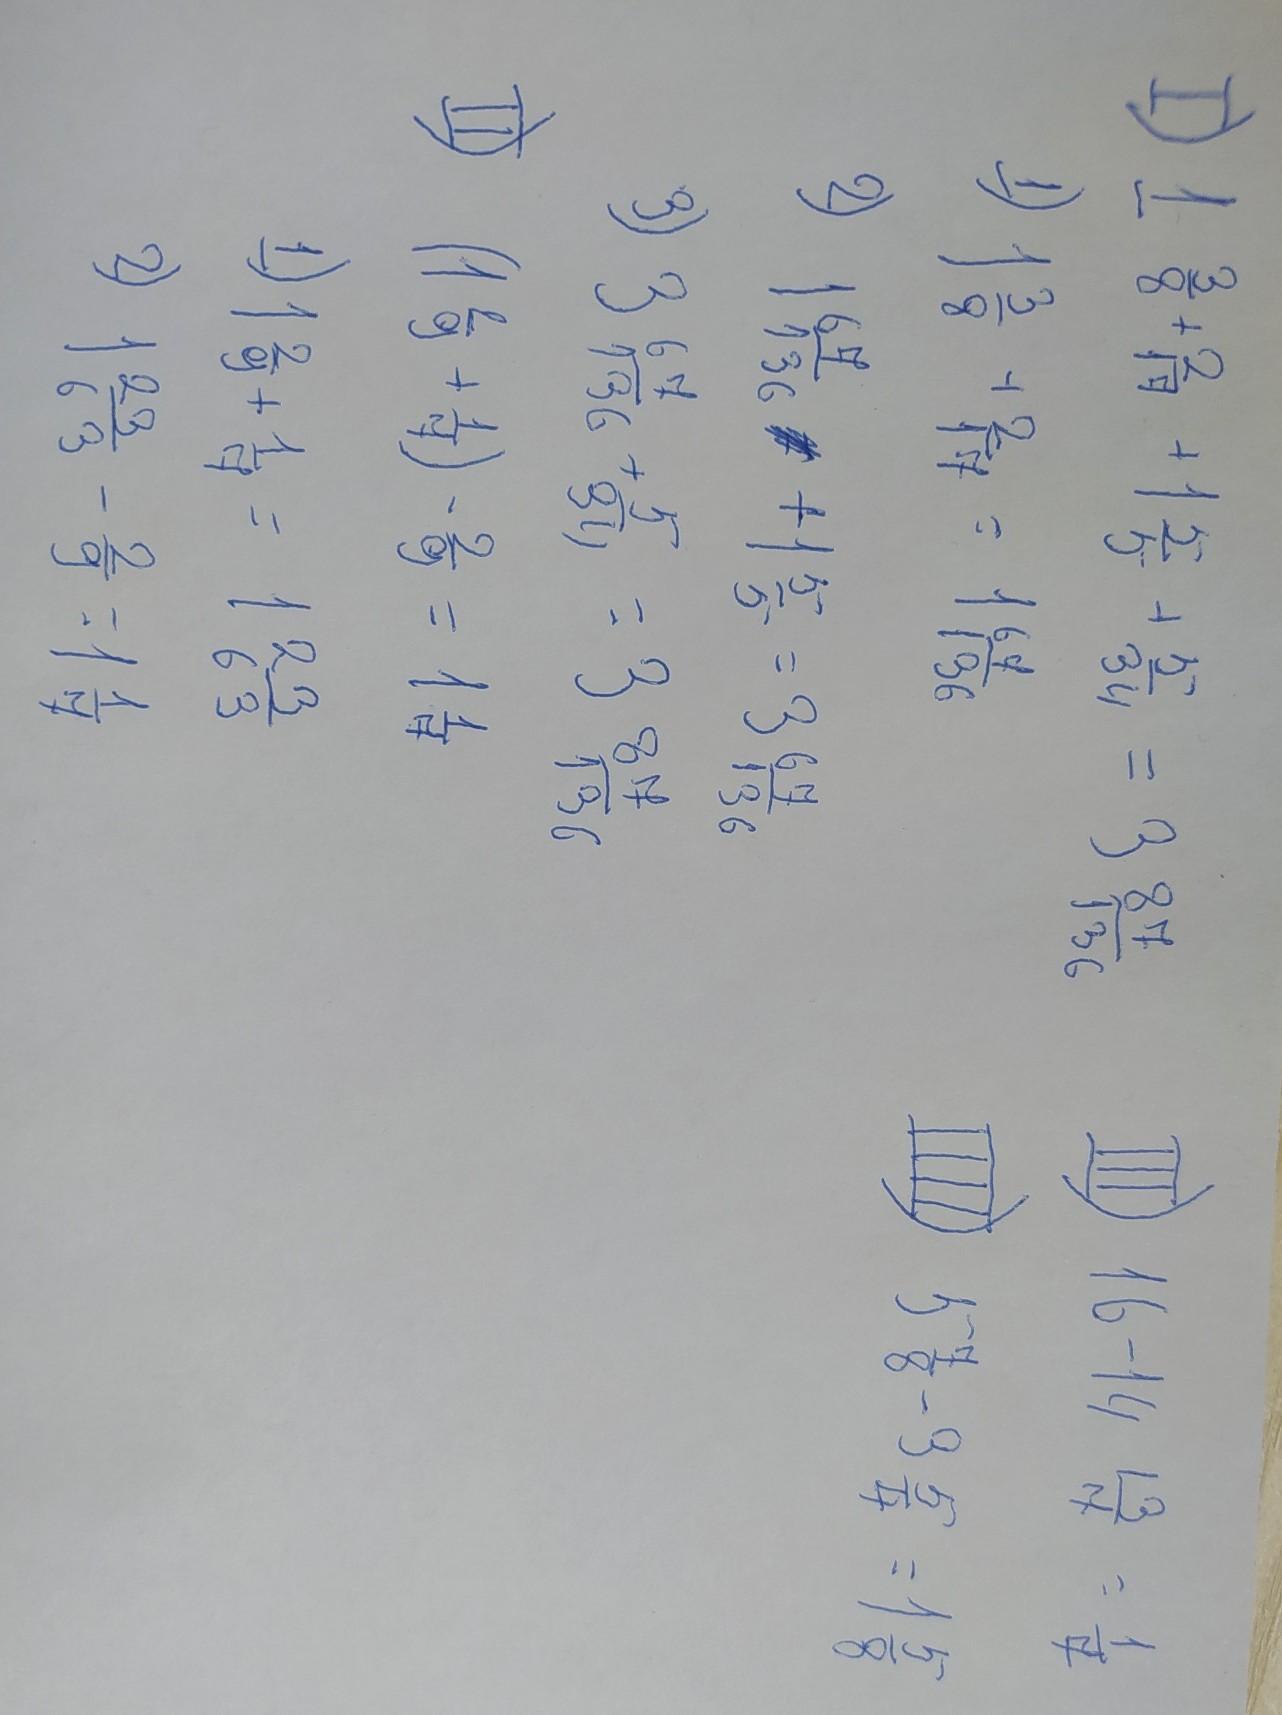 I) 1 3/8 + 2/17 + 1 5/5 + 5/34 = 3 87/136
1) 1 3/8 + 2/17 = 1 67/136
2) 1 67/136 + 1 5/5 = 3 67/136
3) 3 67/136 + 5/34 = 3 87/136
II) (1 2/9 + 1/7) - 2/9 = 1 1/7
1) 1 2/9 + 1/7 = 1 23/63
2) 1 23/63 - 2/9 = 1 1/7
III) 16 - 14 13/7 = 1/7
IIII) 5 7/8 - 3 5/7 = 1 5/8